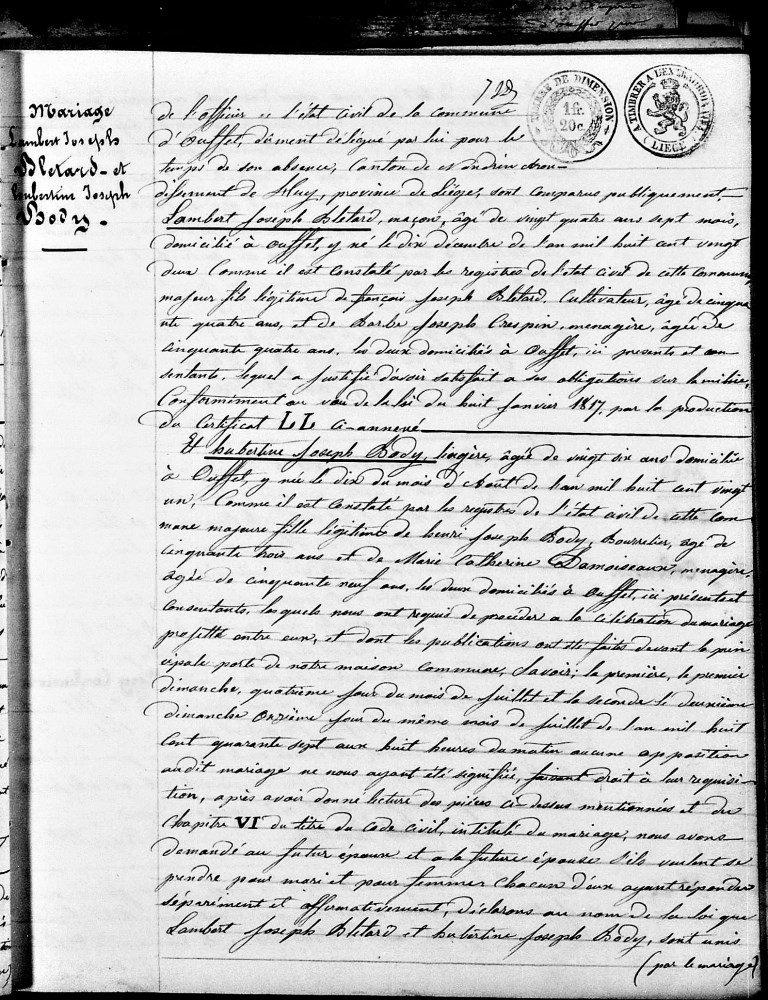 Mariage
Lambert Joseph
Bletard et
hubertine Joseph
Body.
TIMBRE DE DIMENSION
1 fr.
20 c.
A TIMBRER A L'EXTRAORDINAIRE
LIEGE
de l'officier de l'état civil de la commune
d'Ouffet, dûment délégué par lui pour le
temps de son absence, Canton de Nandrin Arron-
dissement de Huy, province de Liège, sont comparus publiquement,
Lambert Joseph Bletard, maçon, âgé de vingt quatre ans sept mois,
domicilié à Ouffet, y né le dix décembre de l'an mil huit cent vingt
deux Comme il est constaté par les registres de l'état civil de cette commune,
majeur fils légitime de françois Joseph Bletard, Cultivateur, âgé de cinqua
nte quatre ans, et de Barbe Joseph Crespin, menagère, âgée de
cinquante quatre ans, les deux domiciliés à Ouffet, ici présents et con-
sentants, lequel a justifié d'avoir satisfait a ses obligations sur la milice,
Conformément au vœu de la loi du huit Janvier 1817, par la production
du Certificat LL ci-annexé
Et hubertine Joseph Body, lingère, âgée de vingt six ans domiciliée
à Ouffet, y née le dix du mois d'Août de l'an mil huit cent vingt
un, Comme il est constaté par les registres de l'état civil de cette com-
mune majeure fille légitime de henri Joseph Body, Bourrelier, âgé de
cinquante trois ans et de Marie Catherine Damoiseaux, menagère,
âgée de cinquante neuf ans, les deux domiciliés à Ouffet, ici présents et
Consentants, lesquels nous ont requis de procéder a la Célébration du mariage
projetté entre eux, et dont les publications ont été faits devant la prin
cipale porte de notre maison Commune, Savoir; la première, le premier
dimanche, quatrième jour du mois de Juillet et la seconde le deuxième
dimanche onzième jour du même mois de Juillet de l'an mil huit
Cent quarante sept aux huit heures du matin aucune opposition
audit mariage ne nous ayant été signifiée, faisant droit à leur requisi-
tion, après avoir donné lecture des pièces ci-dessus mentionnés et du
Chapitre VI du titre du Code Civil, intitulé du mariage, nous avons
demandé au futur époux et a la future épouse s'ils veulent se
prendre pour mari et pour femme; Chacun d'eux ayant répondu
séparément et affirmativement, déclarons au nom de la loi que
Lambert Joseph Bletard et hubertine Joseph Body, sont unis
(par le mariage)